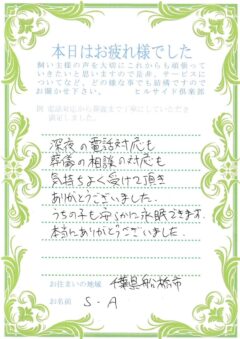 本日はお疲れ様でした
飼い主様の声を大切にこれからも頑張って
いきたいと思いますので是非、サービスに
ついてなど、どの様な事でも結構ですので
お聞かせ下さい。 ヒルサイド倶楽部
例 電話対応から葬儀まで丁寧にしていただき
満足しました。
深夜の電話対応も
葬儀の相談の対応も
気持ちよく受けて頂き
ありがとうございました。
うちの子も安らかに永眠できます。
本当にありがとうございました。
お住まいの地域 千葉県船橋市
お名前 S・A